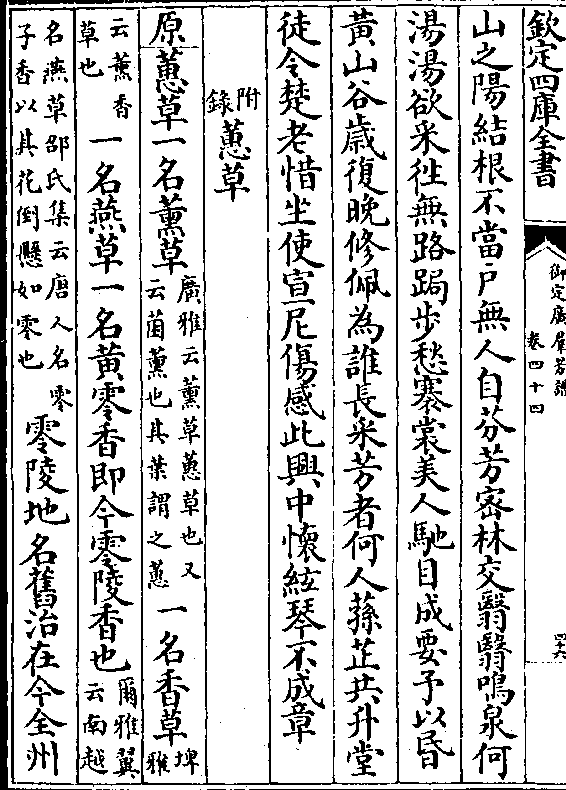 欽定四庫全書
御定廣羣芳譜
卷四十四
四十六
山之陽結根不當戶無人自芬芳密林交翳翳鳴泉何
湯湯欲采徃無路跼步愁褰裳美人馳目成要予以昏
黃山谷歲復晚修佩為誰長采芳者何人蓀芷共升堂
徒令楚老惜坐使宣尼傷感此興中懷絃琴不成章
附錄蕙草
原蕙草一名薫草廣雅云薰草蕙草也又云菌薰也其葉謂之蕙一名香草埤雅
云薰香草也一名燕草一名黃零香即今零陵香也爾雅翼云南越
名燕草邵氏集云唐人名零子香以其花倒懸如零也零陵地名舊治在今全州